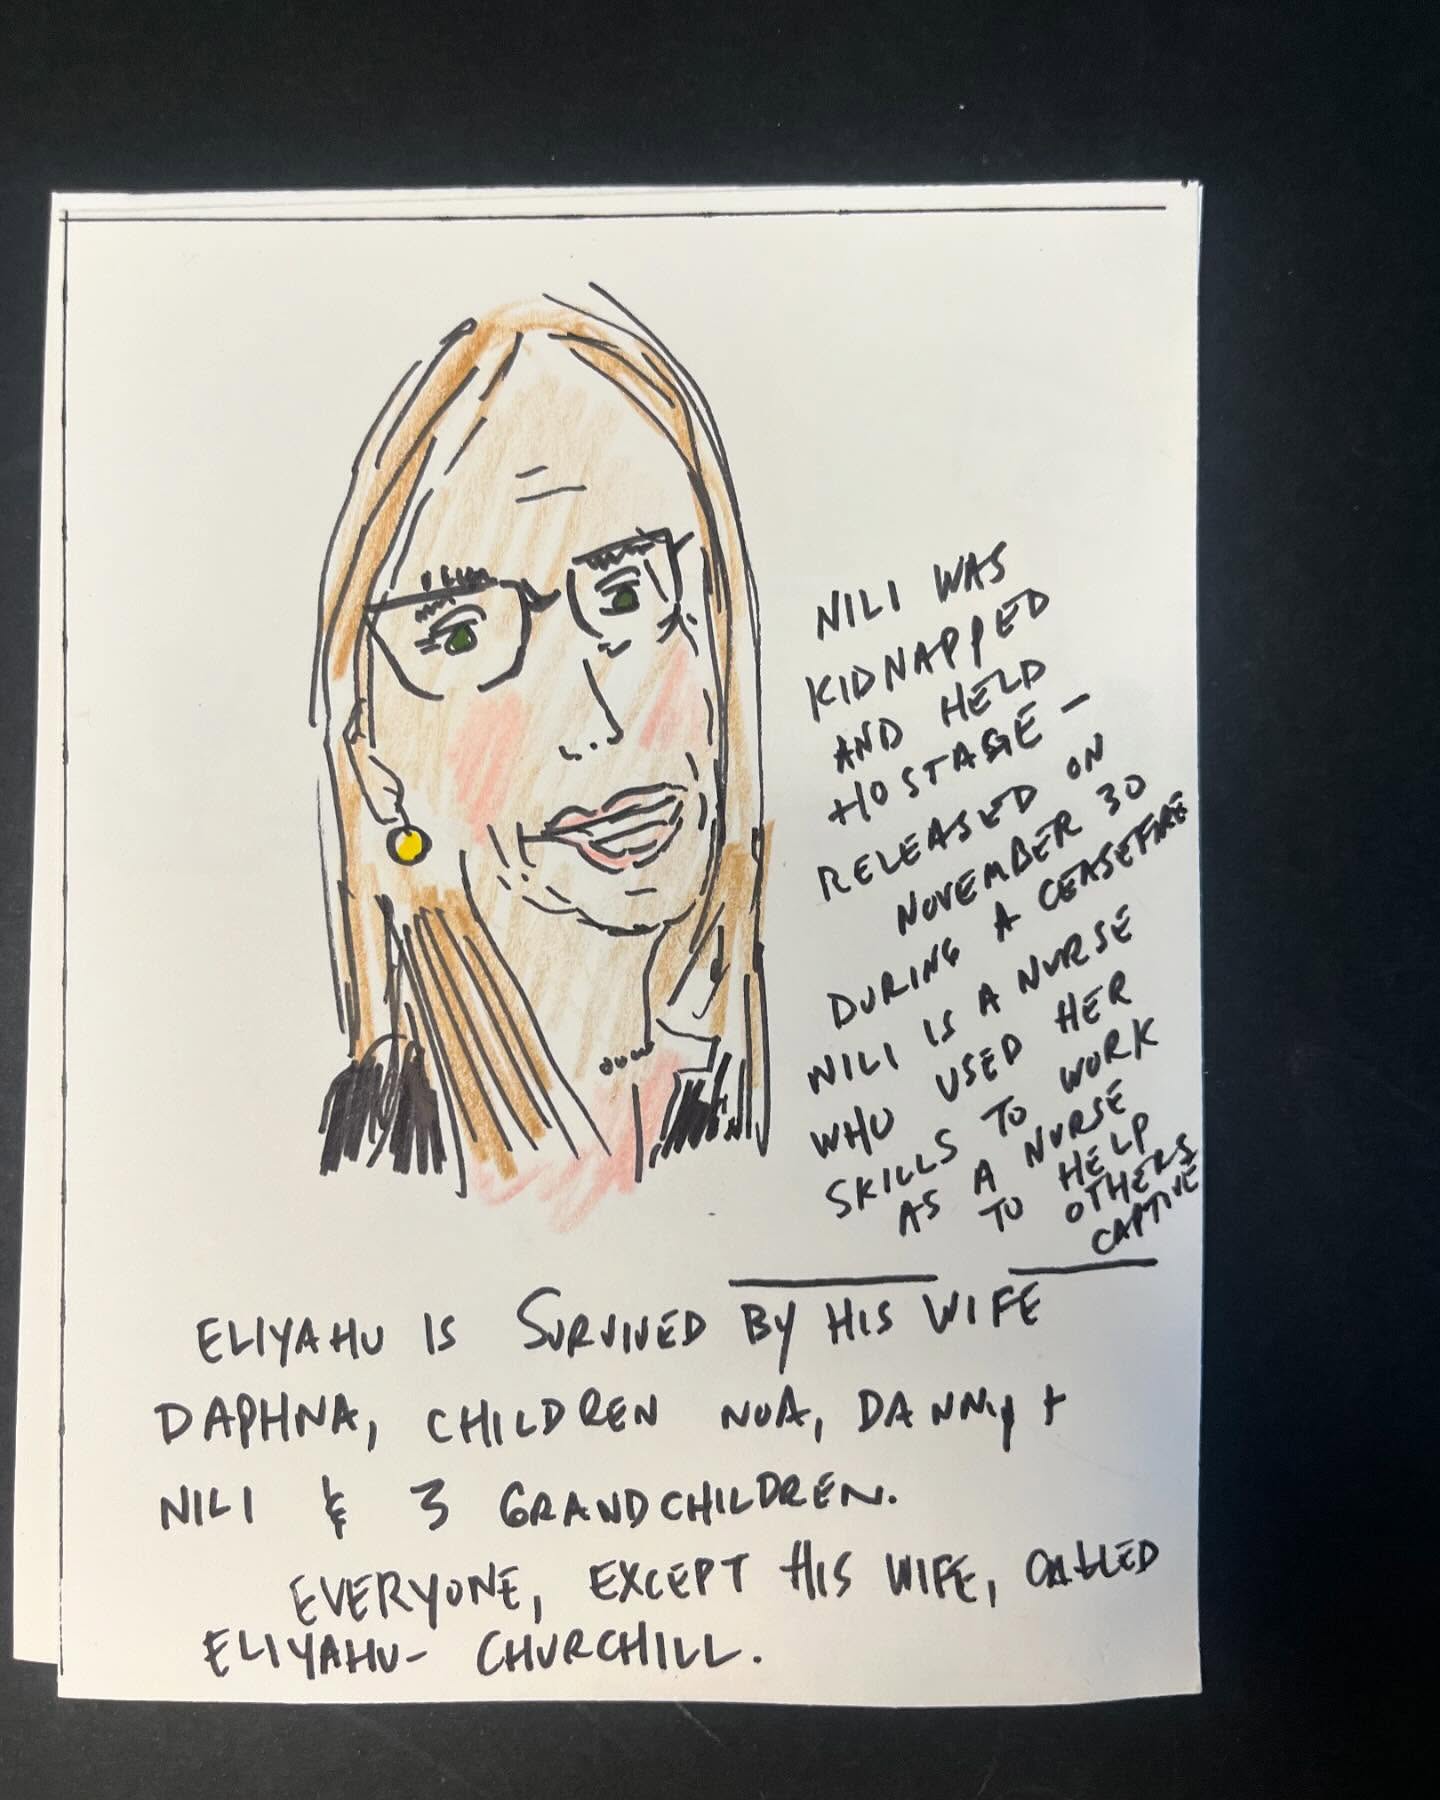 NILI WAS
KIDNAPPED
AND HELD
HOSTAGE -
RELEASED ON
NOVEMBER 30
DURING A CEASEFIRE
NILI IS A NURSE
WHO USED HER
SKILLS TO WORK
AS A NURSE
TO HELP
OTHERS
CAPTIVE
ELIYAHU IS SURVIVED BY HIS WIFE
DAPHNA, CHILDREN NOA, DANNY +
NILI & 3 GRANDCHILDREN.
EVERYONE, EXCEPT HIS WIFE, CALLED
ELIYAHU- CHURCHILL.